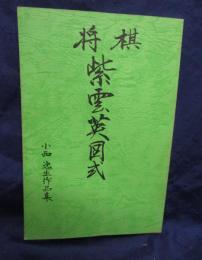 将棋
紫雲英図式
小西逸生作品集